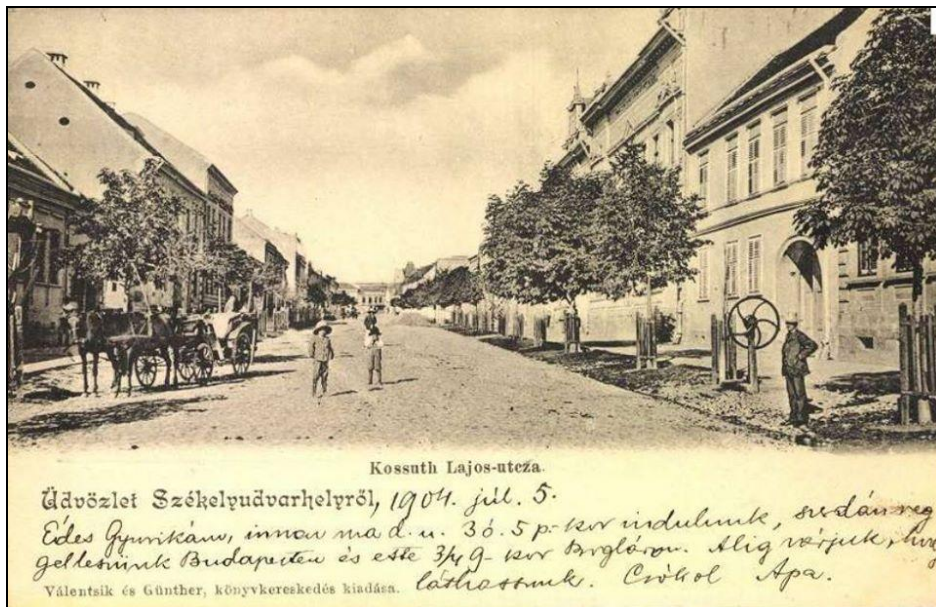 Kossuth Lajos-utcza.
Üdvözlet Székelyudvarhelyről, 1904. júl. 5.
Édes Gyurikám, innen ma d. u. 3ó. 5 p-kor indulunk, szerdán reg
gel leszünk Budapesten és este 3/4 9-kor Bogláron. Alig várjuk, hogy
láthassunk. Csókol Apa.
Válentsik és Günther, könyvkereskedés kiadása.